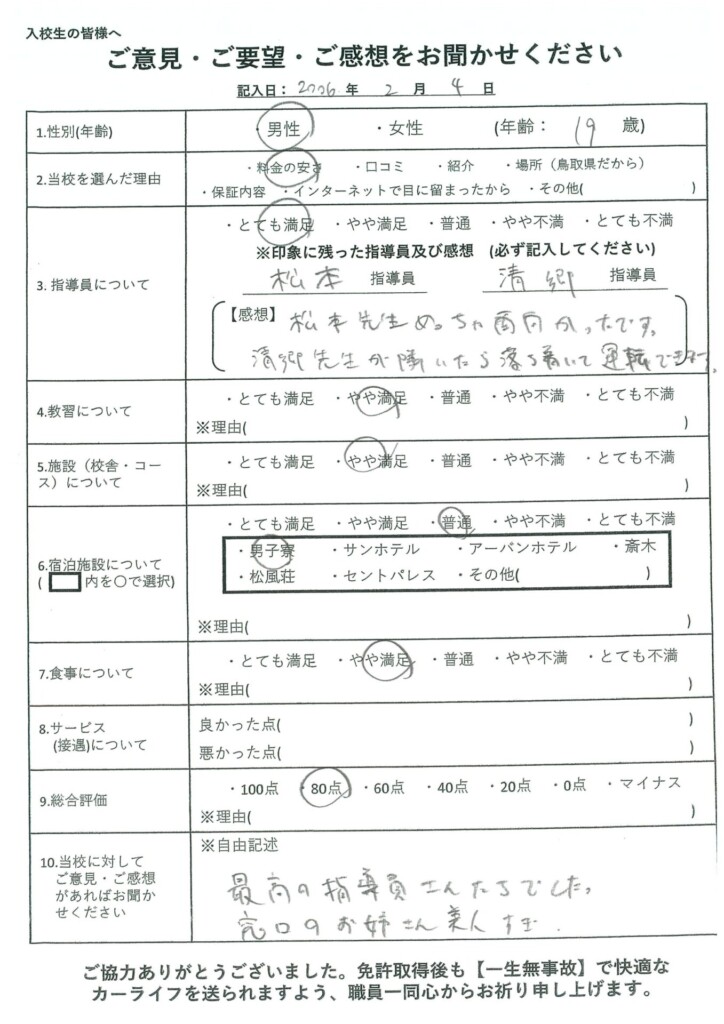 入校生の皆様へ
ご意見・ご要望・ご感想をお聞かせください
記入日：2026年 2月 4日
1.性別(年齢) ・男性 ・女性 (年齢： 19 歳)
2.当校を選んだ理由 ・料金の安さ ・口コミ ・紹介 ・場所（鳥取県だから）
・保証内容 ・インターネットで目に留まったから ・その他( )
3. 指導員について ・とても満足 ・やや満足 ・普通 ・やや不満 ・とても不満
※印象に残った指導員及び感想 (必ず記入してください)
松本 指導員 清郷 指導員
【感想】 松本先生めっちゃ面白かったです。
清郷先生が隣いたら落ち着いて運転できます。
4.教習について ・とても満足 ・やや満足 ・普通 ・やや不満 ・とても不満
※理由( )
5.施設（校舎・コース）について ・とても満足 ・やや満足 ・普通 ・やや不満 ・とても不満
※理由( )
6.宿泊施設について ・とても満足 ・やや満足 ・普通 ・やや不満 ・とても不満
( 内を〇で選択) ・男子寮 ・サンホテル ・アーバンホテル ・斎木
・松風荘 ・セントパレス ・その他( )
※理由( )
7.食事について ・とても満足 ・やや満足 ・普通 ・やや不満 ・とても不満
※理由( )
8.サービス 良かった点( )
(接遇)について 悪かった点( )
9.総合評価 ・100点 ・80点 ・60点 ・40点 ・20点 ・0点 ・マイナス
※理由( )
※自由記述
10.当校に対して
ご意見・ご感想
があればお聞か
せください
最高の指導員さんたちでした。
窓口のお姉さん美人すぎ.
ご協力ありがとうございました。免許取得後も【一生無事故】で快適な
カーライフを送られますよう、職員一同心からお祈り申し上げます。